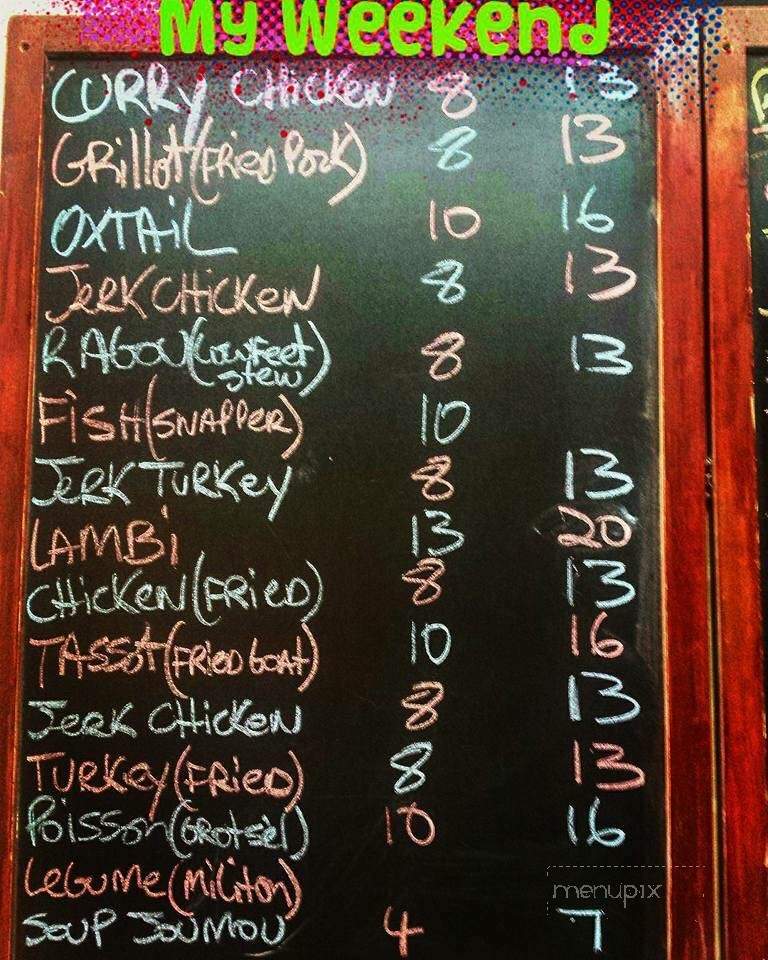 My Weekend
CURRY CHicKeN 8 13
GRillot (FRieD PoRK) 8 13
OXTAiL 10 16
JeRK CHicKeN 8 13
RAGOU (cowFeet stew) 8 13
FisH (SNAPPeR) 10
JeRK TURKey 8 13
LAMBi 13 20
CHicKeN (FRieD) 8 13
TASSOt (FRieD GOAt) 10 16
JeRK CHicKeN 8 13
TURKey (FRieD) 8 13
Poisson (GROtSel) 10 16
LeGUMe (MiLitoN)
SOUP JOUMOU 4 7
menupix